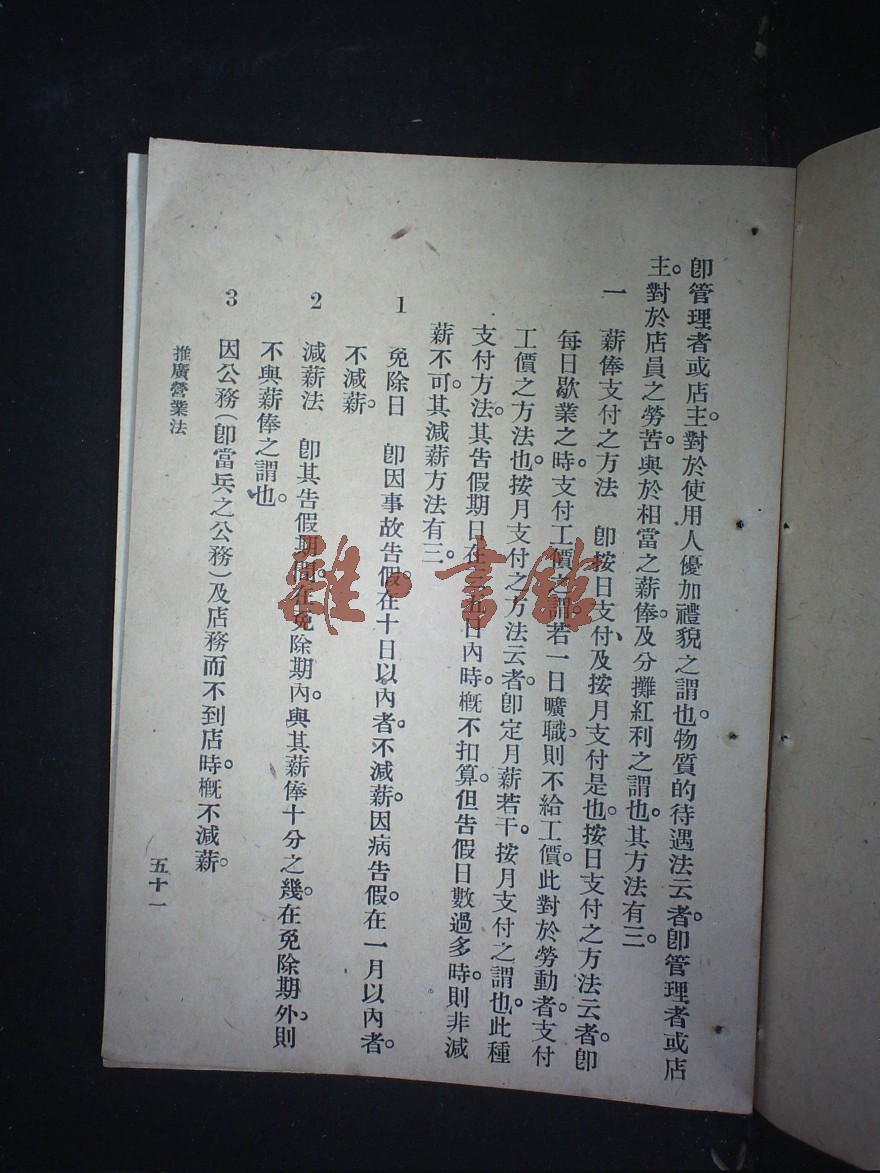 卽管理者或店主。對於使用人優加禮貌之謂也。物質的待遇法云者。卽管理者或店
主。對於店員之勞苦。與於相當之薪俸。及分攤紅利之謂也。其方法有三。
一　薪俸支付之方法　卽按日支付及按月支付是也。按日支付之方法云者。卽
每日歇業之時。支付工價之謂。若一日曠職。則不給工價。此對於勞動者。支付
工價之方法也。按月支付之方法云者。卽定月薪若干。按月支付之謂也。此種
支付方法。其告假期日在三五日內時。槪不扣算。但告假日數過多時。則非減
薪不可。其減薪方法有三。
1　免除日　卽因事故告假。在十日以內者。不減薪。因病告假。在一月以內者。
不減薪。
2　減薪法　卽其告假期間。在免除期內。與其薪俸十分之幾。在免除期外。則
不與薪俸之謂也。
3　因公務(卽當兵之公務)及店務而不到店時。槪不減薪。
推廣營業法
五十一
雜·書館